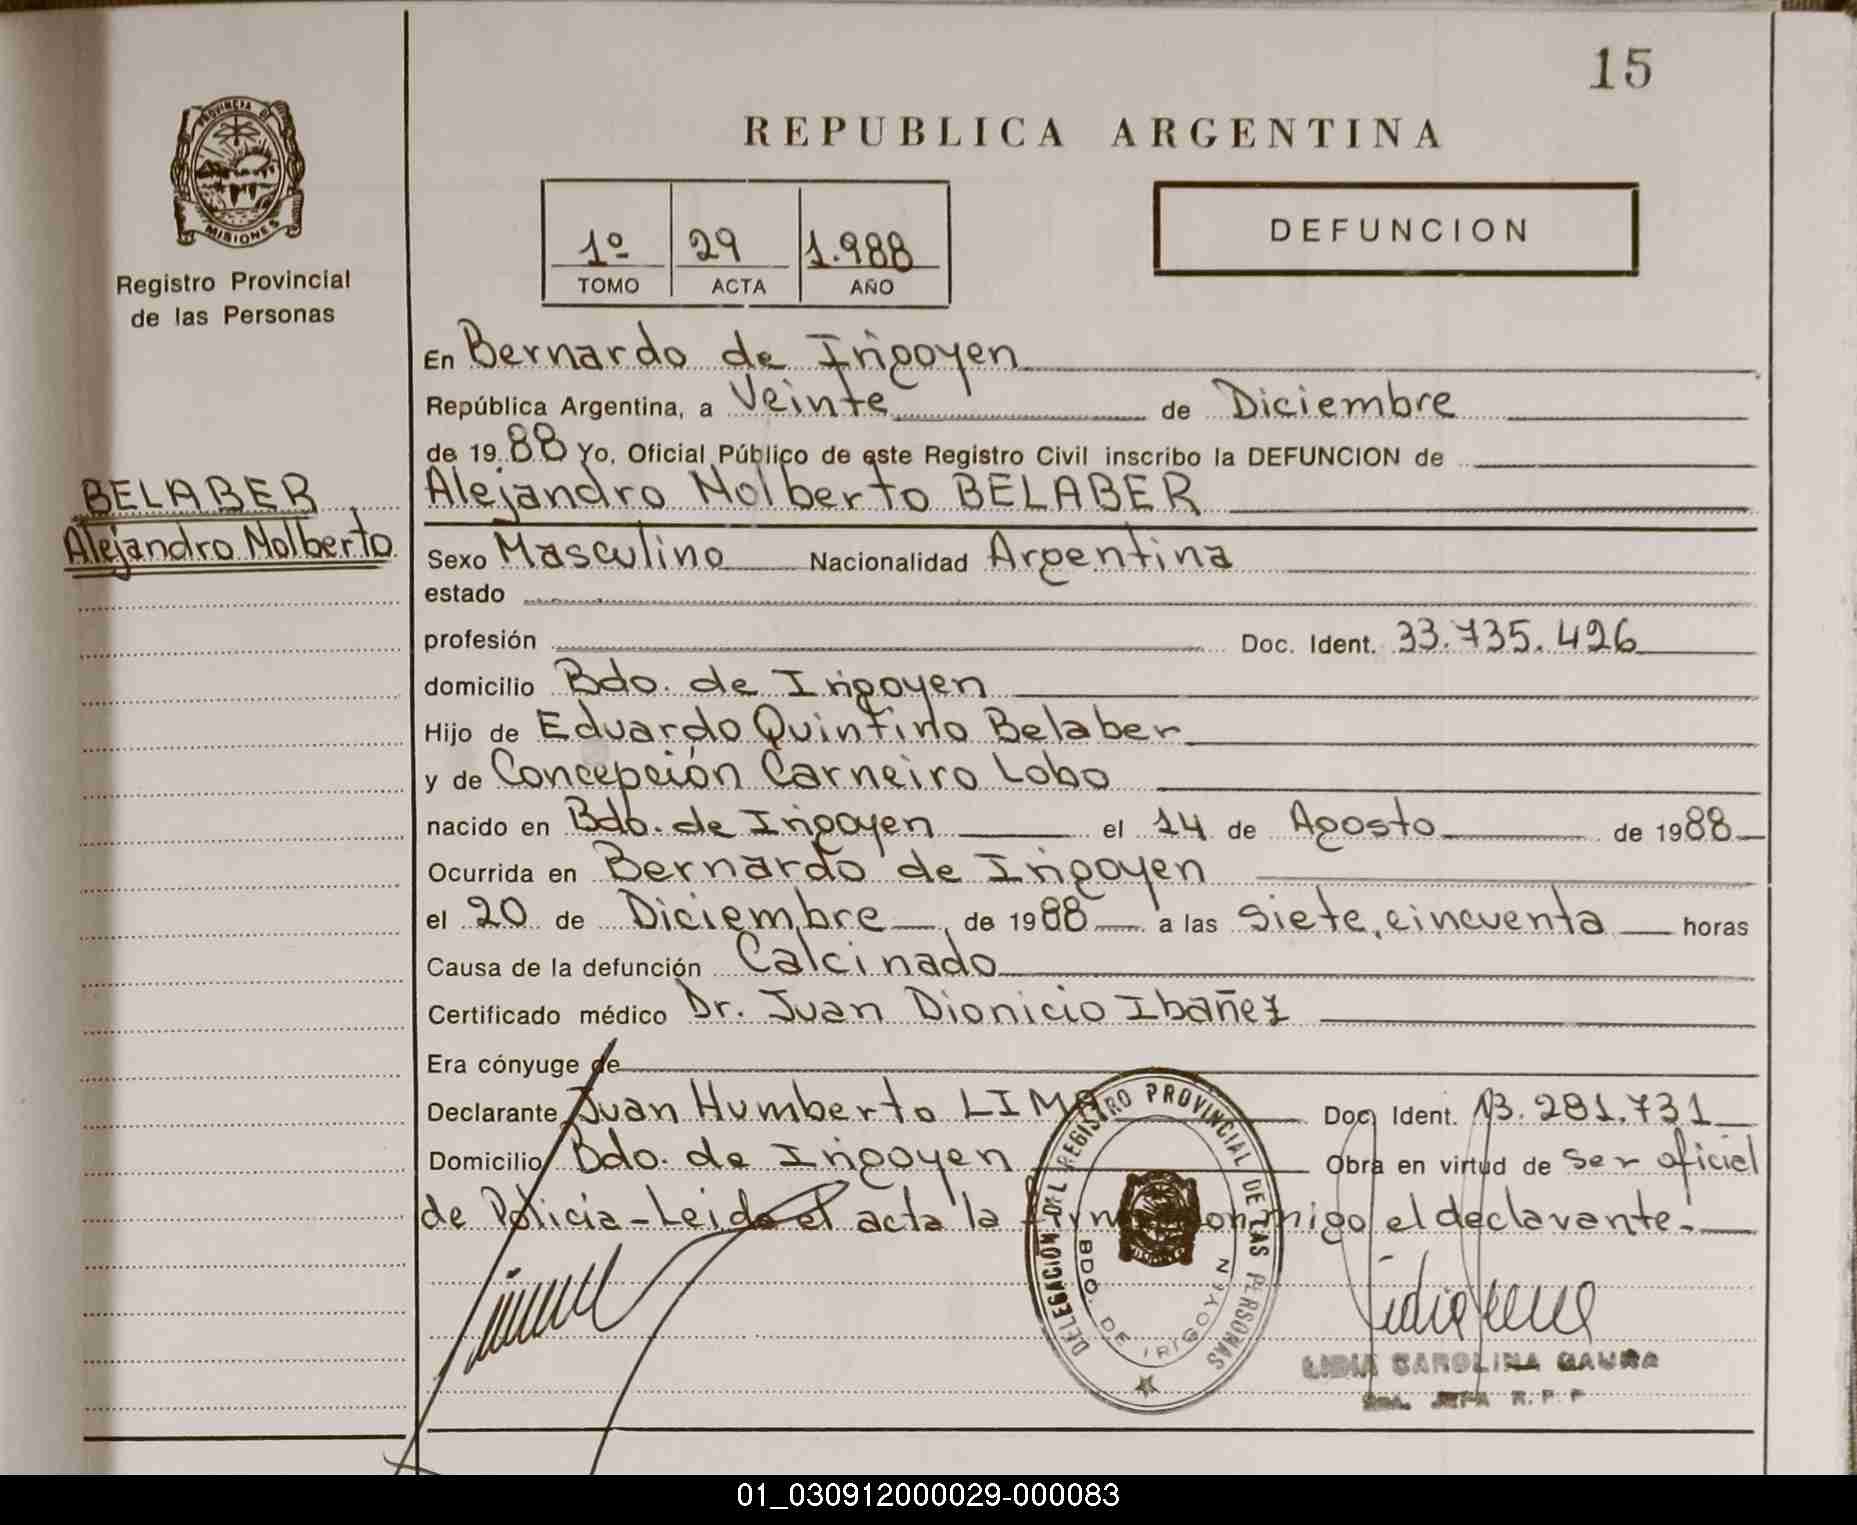 15
PROVINCIA DE
MISIONES
Registro Provincial
de las Personas
REPUBLICA ARGENTINA
1º 29 1.988
TOMO ACTA AÑO
DEFUNCION
BELABER
Alejandro Nolberto
En Bernardo de Irigoyen
República Argentina, a Veinte de Diciembre
de 1988 Yo, Oficial Público de este Registro Civil inscribo la DEFUNCION de
Alejandro Nolberto BELABER
Sexo Masculino Nacionalidad Argentina
estado
profesión Doc. Ident. 33.735.426
domicilio Bdo. de Irigoyen
Hijo de Eduardo Quintino Belaber
y de Concepción Carneiro Lobo
nacido en Bdo. de Irigoyen el 14 de Agosto de 1988
Ocurrida en Bernardo de Irigoyen
el 20 de Diciembre de 1988 a las siete, cincuenta horas
Causa de la defunción Calcinado
Certificado médico Dr. Juan Dionicio Ibañez
Era cónyuge de
Declarante Juan Humberto LIMA Doc. Ident. 13.281.731
Domicilio Bdo. de Irigoyen Obra en virtud de ser oficial
de Policia - Leida el acta la firma conmigo el declarante.-
DELEGACION DEL REGISTRO PROVINCIAL DE LAS PERSONAS
BDO. DE IRIGOYEN
LIDIA CAROLINA
JEFA R.P.P
01_030912000029-000083